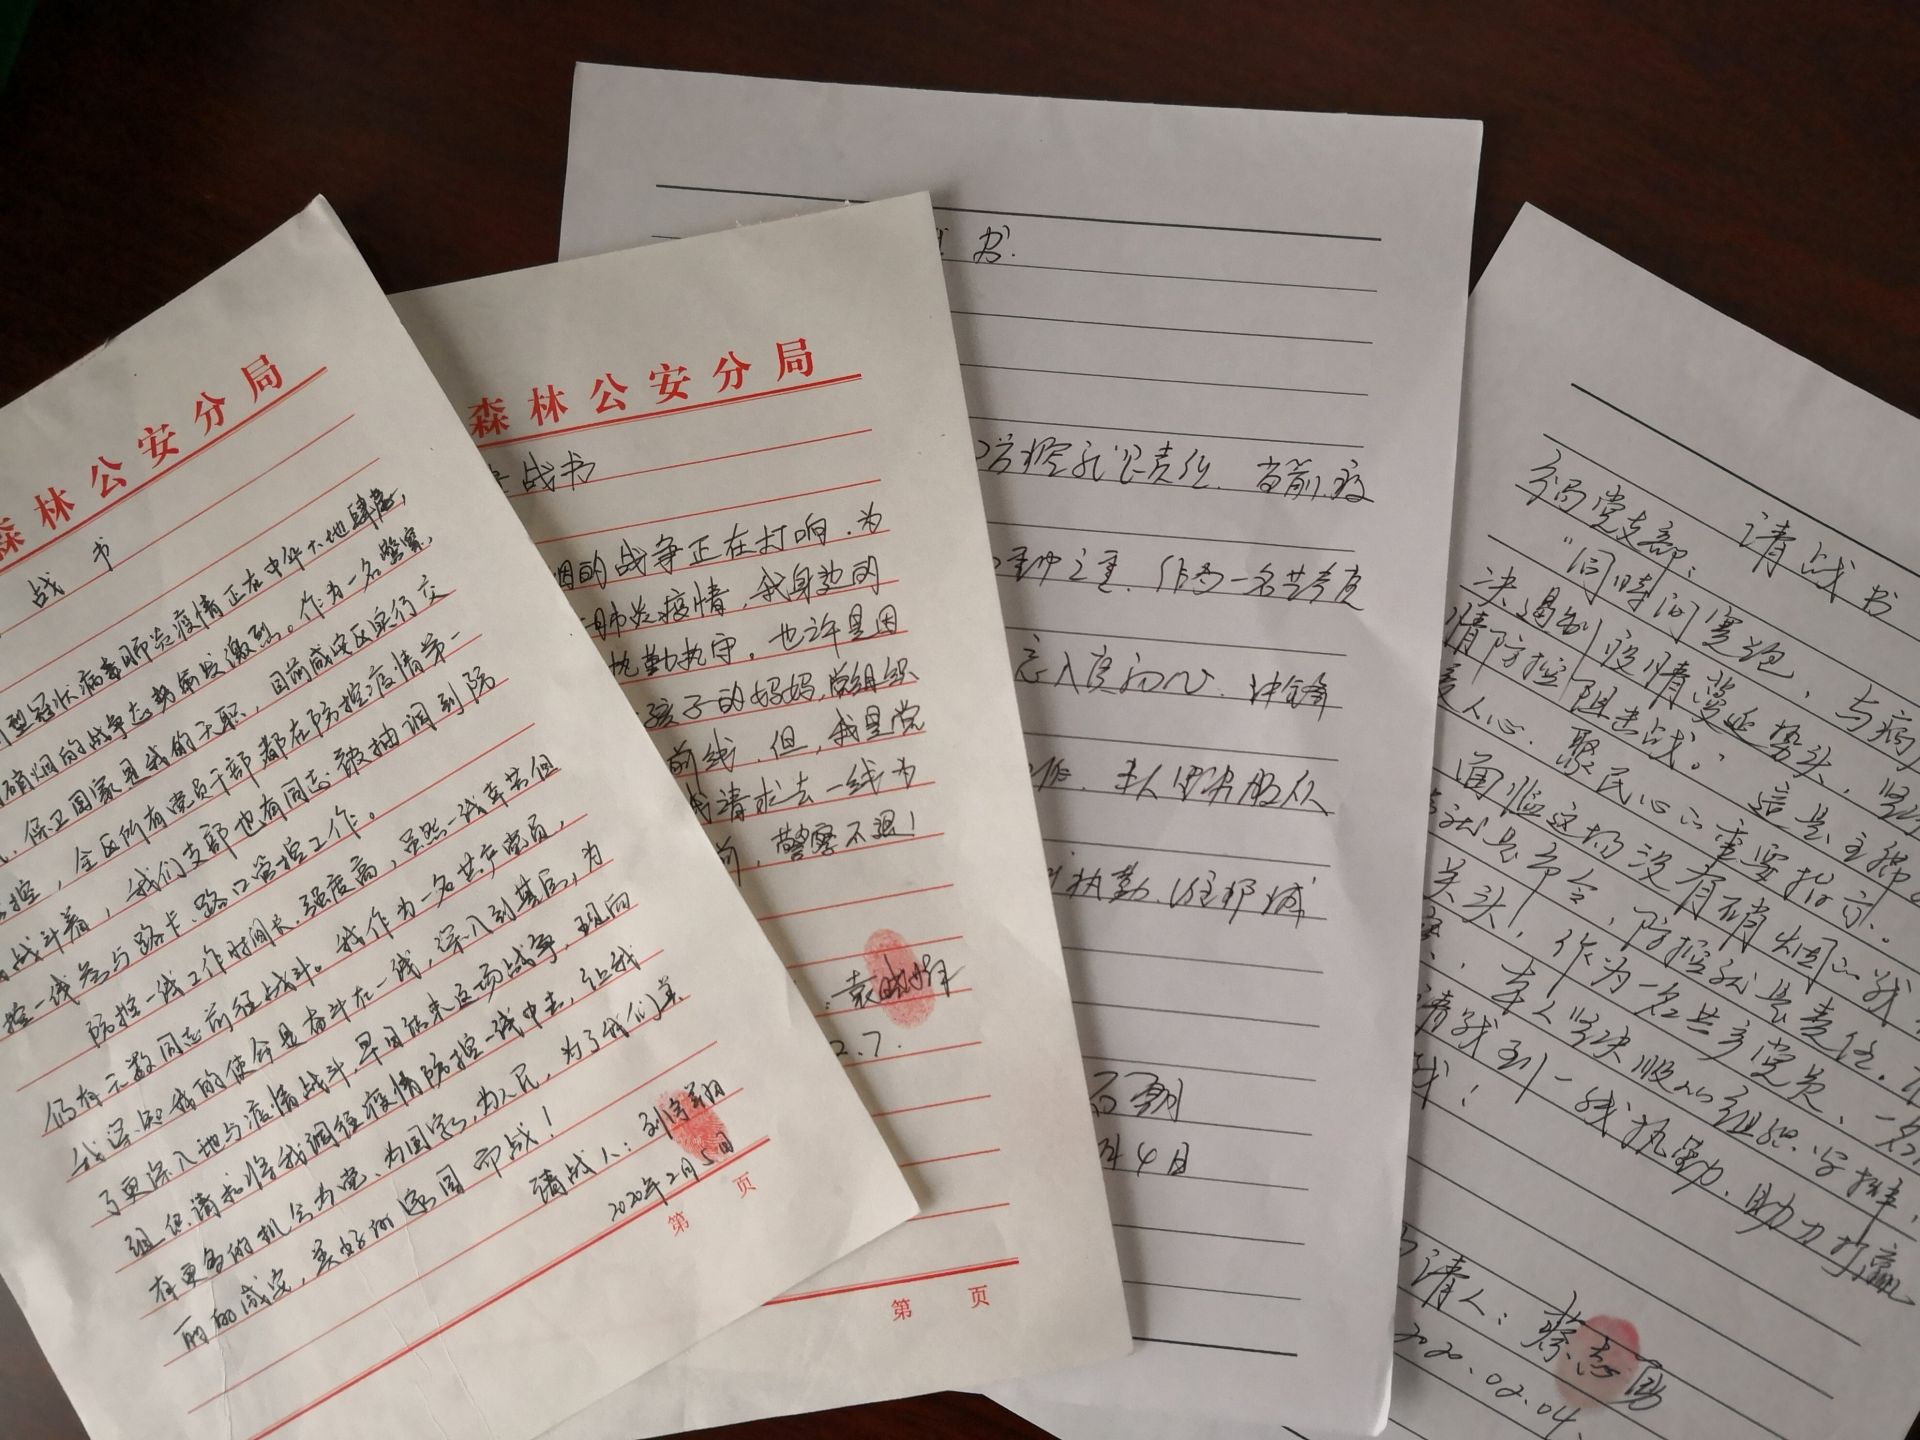 森林公安分局
战书
型冠状病毒肺炎疫情正在中华大地肆虐,
硝烟的战争态势愈发激烈。作为一名警察,
保卫国家是我的天职,目前咸安区实行交
控,全区所有党员干部都在防控疫情第一
战斗着,我们支部也有同志被抽调到防
控一线参与路卡、路口管控工作。
防控一线工作时间长、强度高,虽然一线辛苦但
仍有无数同志前往战斗。我作为一名共产党员,
我深知我的使命是奋斗在一线,深入到基层,为
了更深入地与疫情战斗,早日结束这场战争,现向
组织请求将我调往疫情防控一线中去,让我
有更多的机会为党、为国家、为人民,为了我们美
丽的咸安,美好的家园而战!
请战人:刘宇翔
2020年2月5日
第 页
森林公安分局
战书
烟的战争正在打响.为
肺炎疫情,我身边的
执勤执守,也许是因
孩子的妈妈,党组织
前线.但,我是党
我请求去一线为
前,警察不退!
袁
2.7.
第 页
书.
防控就是责任.当前,疫
重中之重.作为一名共产党
忘入党初心.冲锋
执勤、
石朝
年4日
请战书
分局党支部:
“同时间赛跑,与病
决遏制疫情蔓延势头,坚
情防控阻击战。”这是主席
人心、聚民心的重要指示。
面临这场没有硝烟的战
就是命令,防控就是责任.
关头,作为一名共产党员、一名
本人坚决服从组织安排,
请战到一线执勤.助力打赢
战!
请人:蔡志勇
2020.02.04.